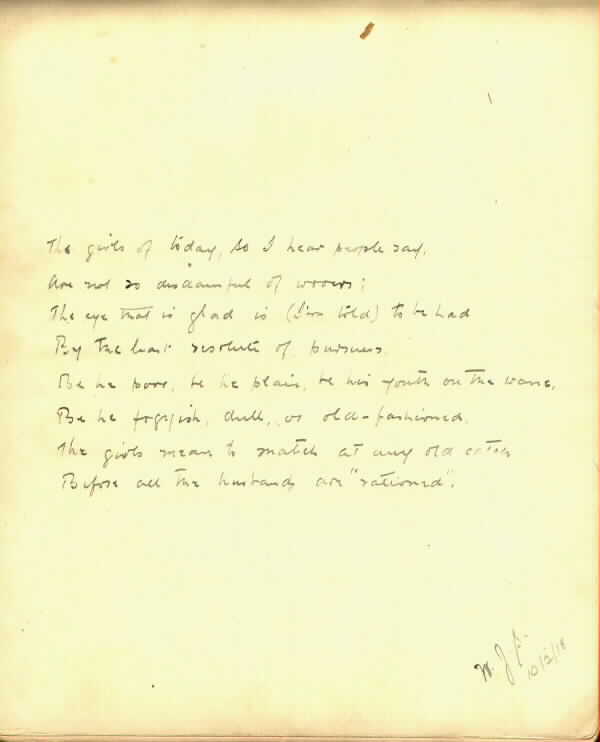 The girls of today, so I hear people say,
Are not so disdainful of wooers;
The eye that is glad is (I'm told) to be had
By the least resolute of pursuers.
Be he poor, be he plain, be his youth on the wane,
Be he fogyish, dull, or old-fashioned,
The girls mean to snatch at any old catch
Before all the husbands are "rationed".
W. J. P.
10/2/18